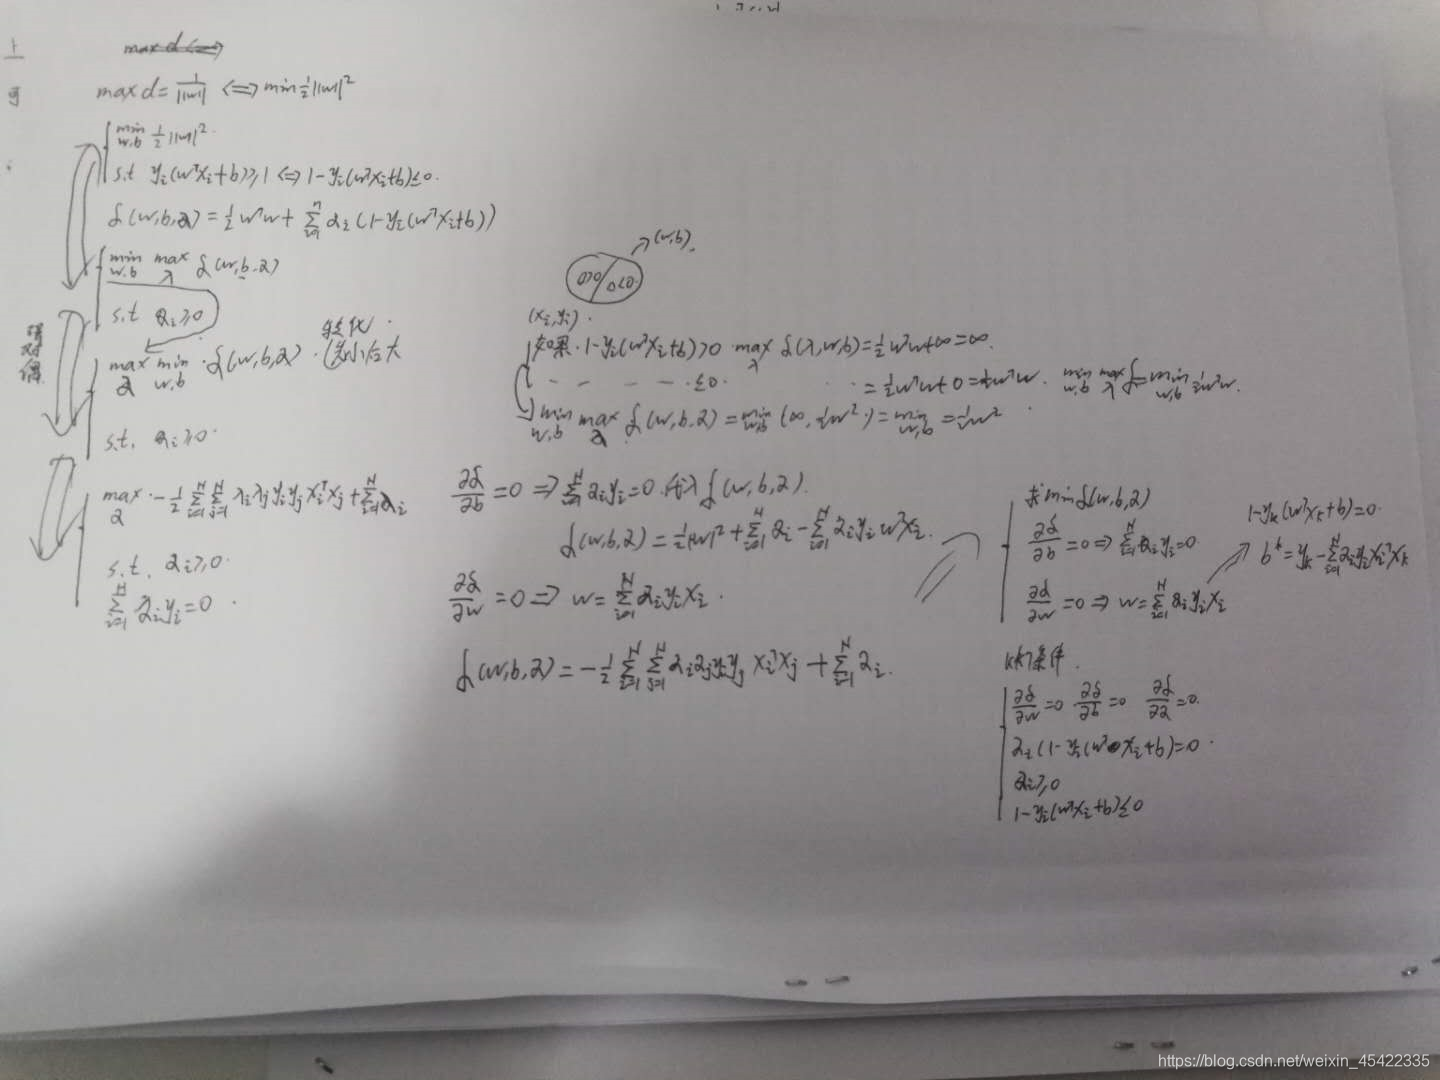 max d ⟺
max d = 1/||w|| ⟺ min ½||w||²
min w,b ½||w||²
s.t yᵢ(wᵀxᵢ+b)≥1 ⟺ 1-yᵢ(wᵀxᵢ+b)≤0.
L(w,b,λ) = ½wᵀw + Σᵢ₌₁ⁿ λᵢ(1-yᵢ(wᵀxᵢ+b))
min w,b max λ L(w,b,λ)
s.t λᵢ≥0
强对偶
max λ min w,b L(w,b,λ).
转化
先小后大
s.t. λᵢ≥0.
max λ -½ Σᵢ₌₁ᴺ Σⱼ₌₁ᴺ λᵢλⱼyᵢyⱼxᵢᵀxⱼ + Σᵢ₌₁ᴺ λᵢ
s.t. λᵢ≥0.
Σᵢ₌₁ᴺ λᵢyᵢ=0.
(w,b).
(xᵢ,yᵢ).
如果 1-yᵢ(wᵀxᵢ+b)>0 max λ L(λ,w,b) = ½wᵀw+∞=∞.
≤0. = ½wᵀw+0 = ½wᵀw. min w,b max λ L = min w,b ½wᵀw.
min w,b max λ L(w,b,λ) = min w,b (∞, ½w².) = min w,b = ½w²
∂L/∂b = 0 ⟹ Σᵢ₌₁ᴺ λᵢyᵢ=0. 代入 L(w,b,λ).
L(w,b,λ) = ½|w|² + Σᵢ₌₁ᴺ λᵢ - Σᵢ₌₁ᴺ λᵢyᵢwᵀxᵢ.
∂L/∂w = 0 ⟹ w = Σᵢ₌₁ᴺ λᵢyᵢxᵢ.
L(w,b,λ) = -½ Σᵢ₌₁ᴺ Σⱼ₌₁ᴺ λᵢλⱼyᵢyⱼ xᵢᵀxⱼ + Σᵢ₌₁ᴺ λᵢ.
求 min L(w,b,λ)
∂L/∂b = 0 ⟹ Σᵢ₌₁ᴺ λᵢyᵢ=0.
∂L/∂w = 0 ⟹ w = Σᵢ₌₁ᴺ λᵢyᵢxᵢ
1-yₖ(wᵀxₖ+b)=0.
b* = yₖ - Σᵢ₌₁ᴺ λᵢyᵢxᵢᵀxₖ
KKT条件.
∂L/∂w = 0 ∂L/∂b = 0 ∂L/∂λ = 0.
λᵢ(1-yᵢ(wᵀxᵢ+b)=0.
λᵢ≥0
1-yᵢ(wᵀxᵢ+b)≤0
https://blog.csdn.net/weixin_45422335